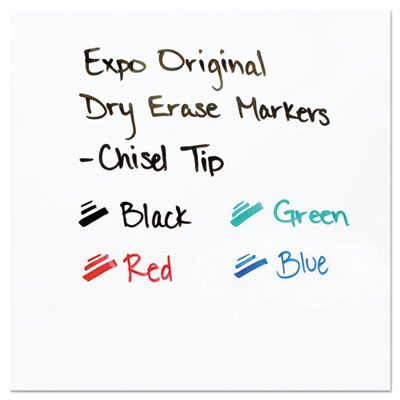 Expo Original
Dry Erase Markers
-Chisel Tip
Black Green
Red Blue